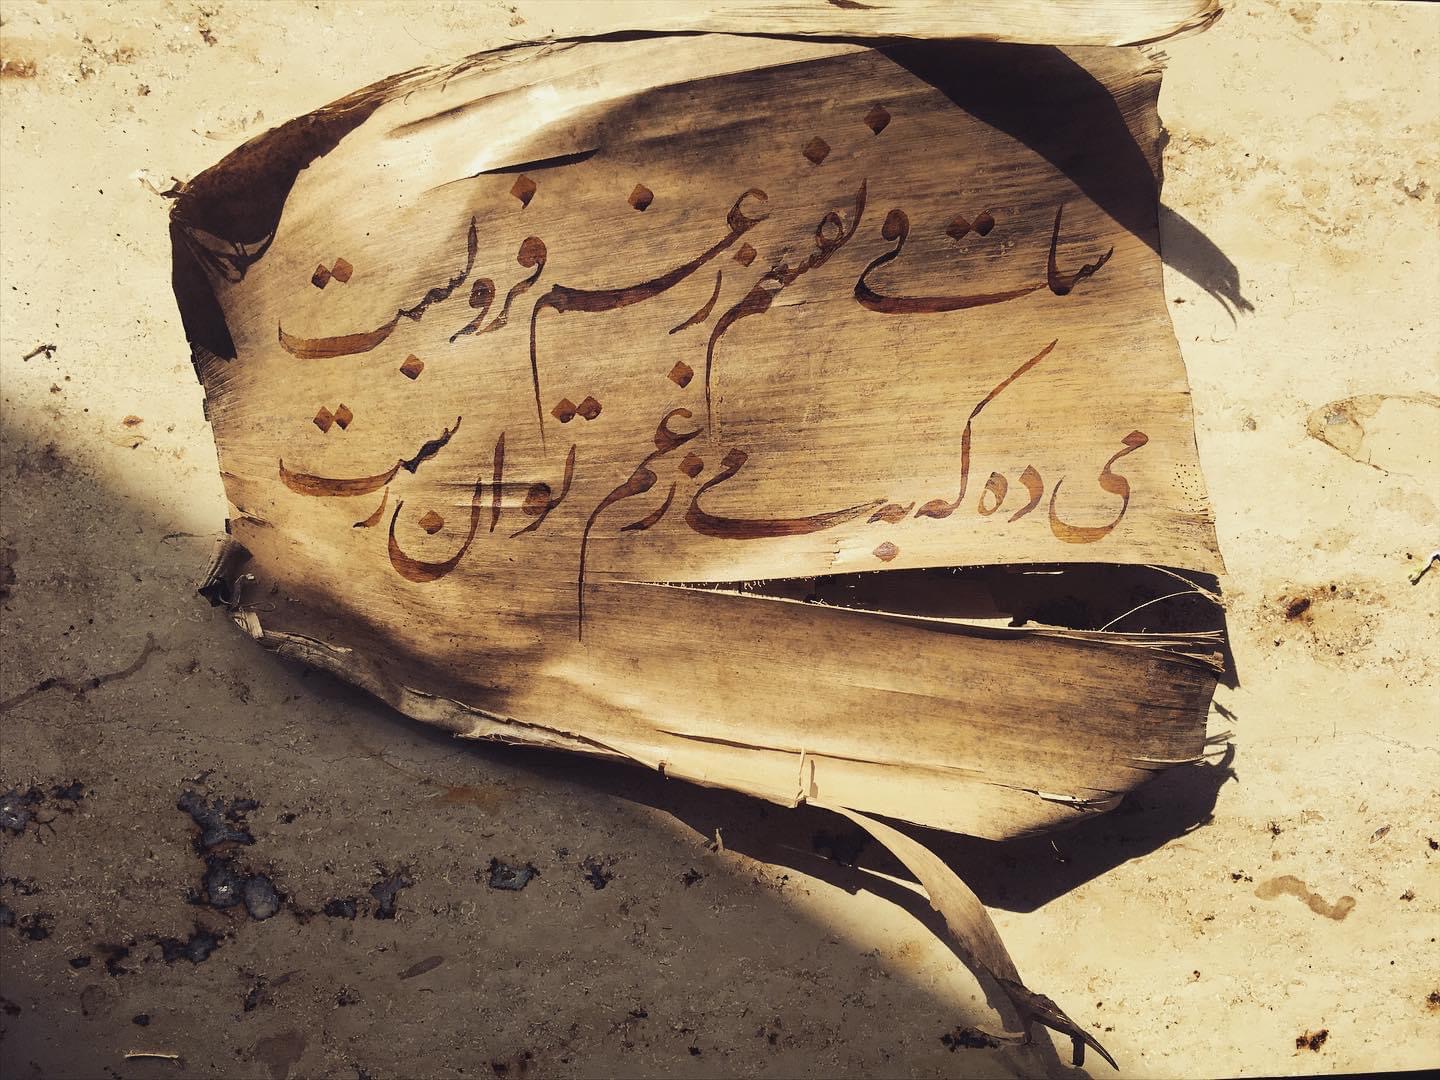 ساقی نفسم ز غم فروبست
می ده که به می ز غم توان رست